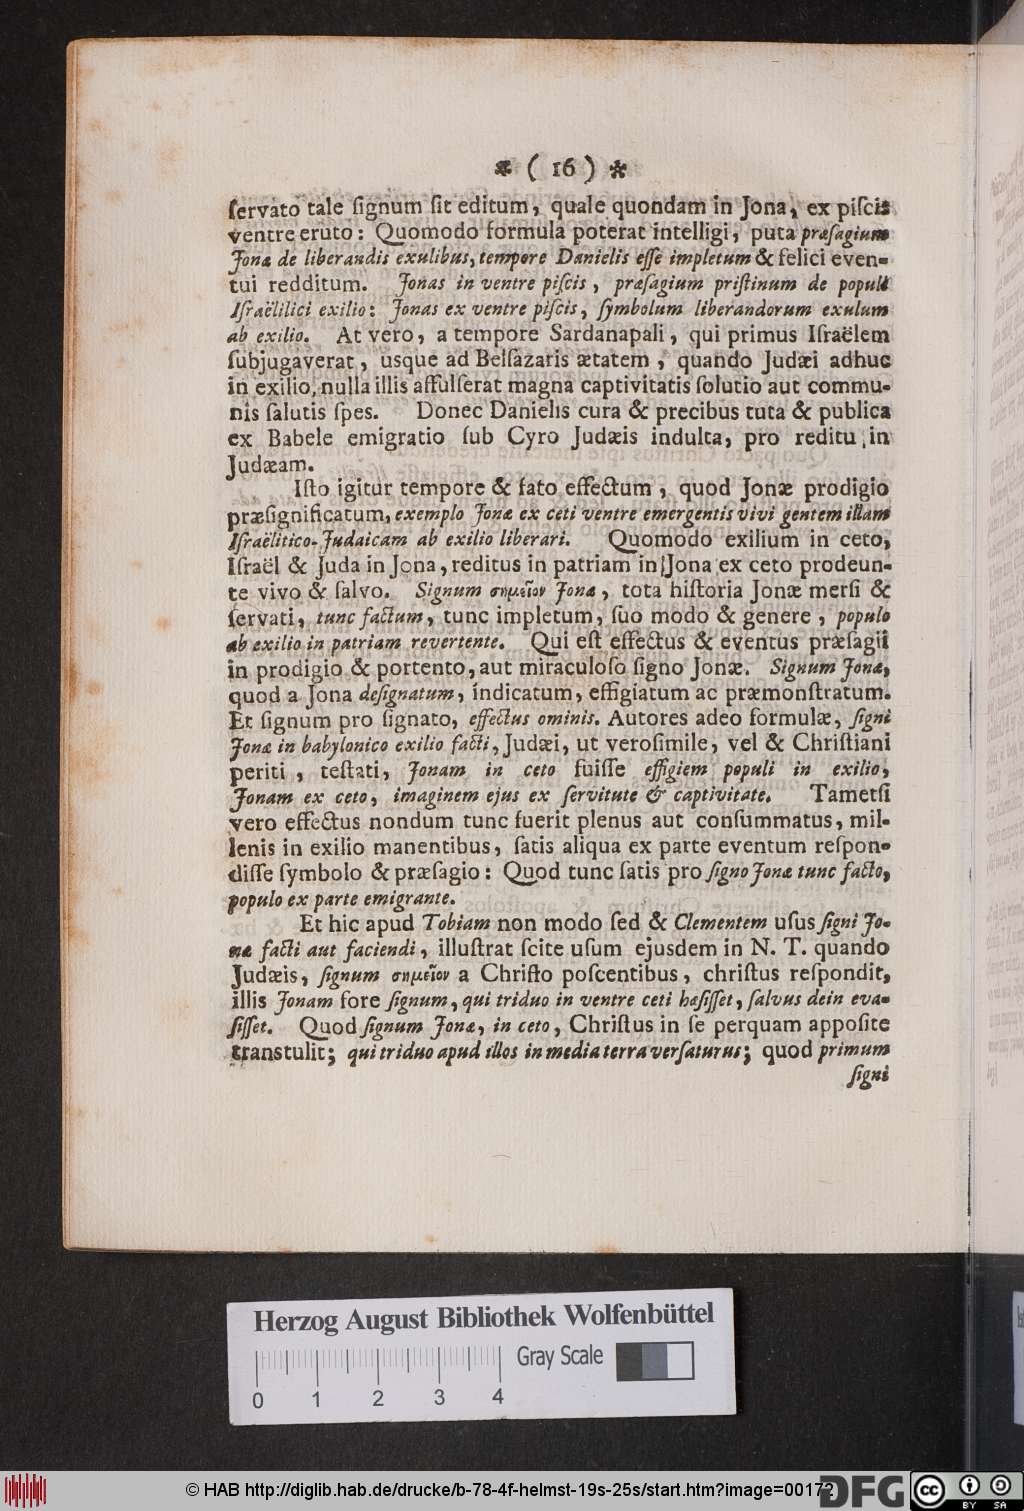 * ( 16 ) *
ſervato tale ſignum ſit editum, quale quondam in Jona, ex piſcis
ventre eruto: Quomodo formula poterat intelligi, puta præſagium
Jonæ de liberandis exulibus, tempore Danielis eſſe impletum & felici even-
tui redditum. Jonas in ventre piſcis, præſagium priſtinum de populi
Iſraëlilici exilio: Jonas ex ventre piſcis, ſymbolum liberandorum exulum
ab exilio. At vero, a tempore Sardanapali, qui primus Iſraëlem
ſubjugaverat, usque ad Belſazaris ætatem, quando Judæi adhuc
in exilio, nulla illis affulſerat magna captivitatis ſolutio aut commu-
nis ſalutis ſpes. Donec Danielis cura & precibus tuta & publica
ex Babele emigratio ſub Cyro Judæis indulta, pro reditu in
Judæam.
Iſto igitur tempore & fato effectum, quod Jonæ prodigio
præſignificatum, exemplo Jonæ ex ceti ventre emergentis vivi gentem illam
Iſraëlitico-Judaicam ab exilio liberari. Quomodo exilium in ceto,
Iſraël & Juda in Jona, reditus in patriam in Jona ex ceto prodeun-
te vivo & ſalvo. Signum σημεῖον Jonæ, tota hiſtoria Jonæ merſi &
ſervati, tunc factum, tunc impletum, ſuo modo & genere, populo
ab exilio in patriam revertente. Qui eſt effectus & eventus præſagii
in prodigio & portento, aut miraculoſo ſigno Jonæ. Signum Jonæ,
quod a Jona deſignatum, indicatum, effigiatum ac præmonſtratum.
Et ſignum pro ſignato, effectus ominis. Autores adeo formulæ, ſigni
Jonæ in babylonico exilio facti, Judæi, ut veroſimile, vel & Chriſtiani
periti, teſtati, Jonam in ceto fuiſſe effigiem populi in exilio,
Jonam ex ceto, imaginem ejus ex ſervitute & captivitate. Tametſi
vero effectus nondum tunc fuerit plenus aut conſummatus, mil-
lenis in exilio manentibus, ſatis aliqua ex parte eventum reſpon-
diſſe ſymbolo & præſagio: Quod tunc ſatis pro ſigno Jonæ tunc facto,
populo ex parte emigrante.
Et hic apud Tobiam non modo ſed & Clementem uſus ſigni Jo-
næ facti aut faciendi, illuſtrat ſcite uſum ejusdem in N. T. quando
Judæis, ſignum σημεῖον a Chriſto poſcentibus, chriſtus reſpondit,
illis Jonam fore ſignum, qui triduo in ventre ceti hæſiſſet, ſalvus dein eva-
ſiſſet. Quod ſignum Jonæ, in ceto, Chriſtus in ſe perquam appoſite
transtulit; qui triduo apud illos in media terra verſaturus; quod primum
ſigni
Herzog August Bibliothek Wolfenbüttel
Gray Scale
0 1 2 3 4
© HAB http://diglib.hab.de/drucke/b-78-4f-helmst-19s-25s/start.htm?image=00172
DFG
cc BY SA